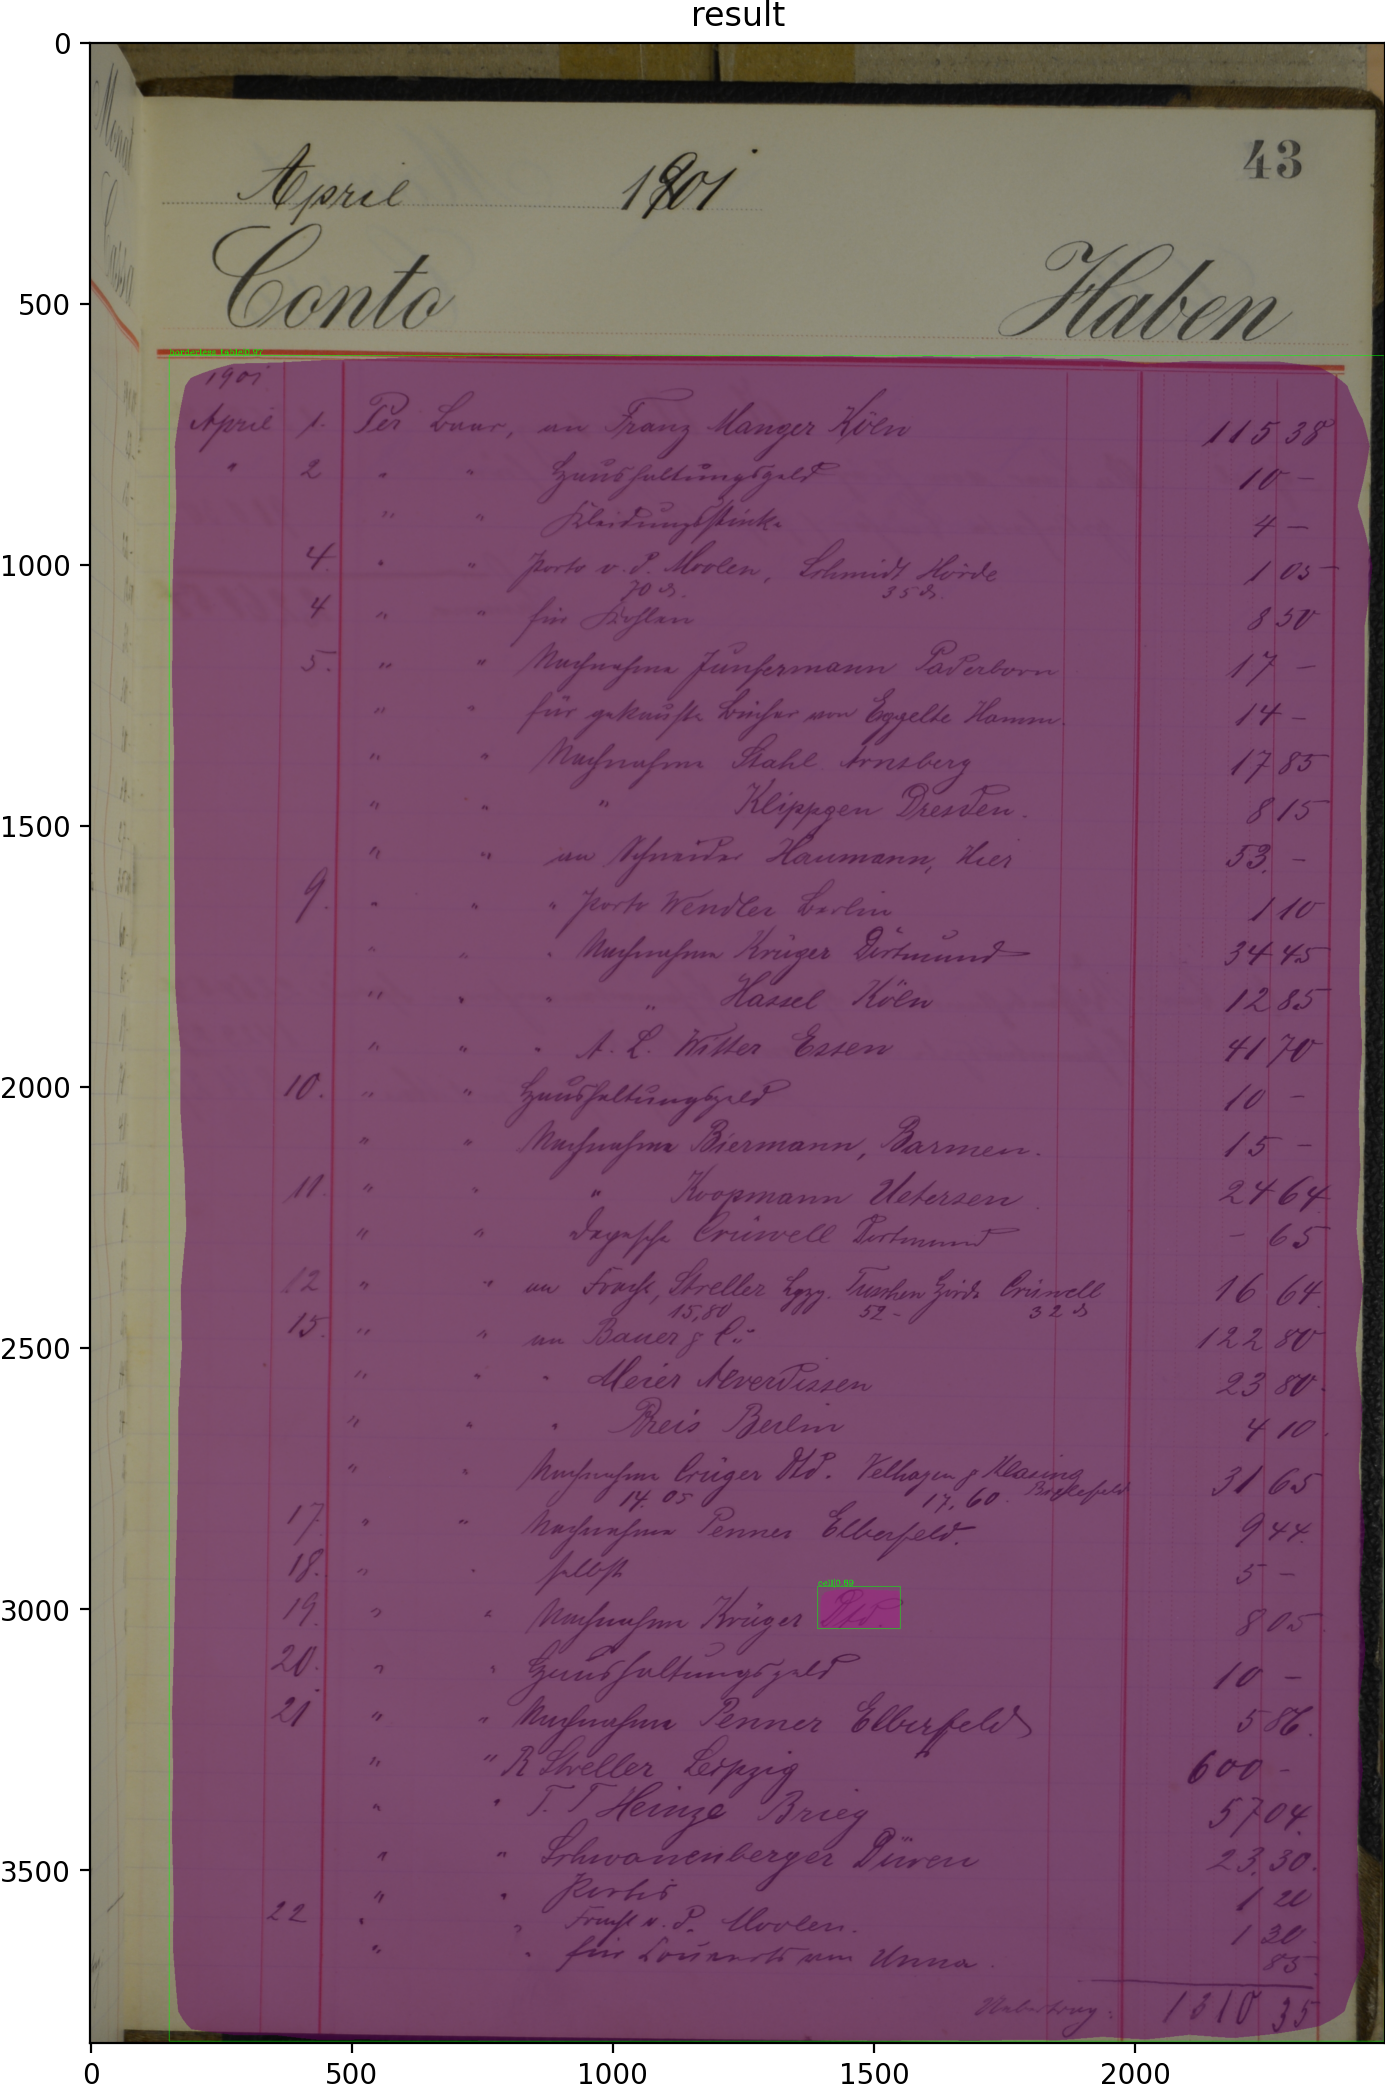 result
43
April 1901
Conto Haben
borderless table|0.97
1901
April 1. Per Baar, an Franz Manger Köln 115 38
" 2 " " Haushaltungsgeld 10 -
" " Kleidungsstücke 4 -
4. " " Porto v. d. Moolen, Schmidt Hörde 1 05
70 d. 35 d.
4 " " für Kohlen 8 50
5. " " Nachnahme Junfermann Paderborn 17 -
" " für gekaufte Bücher von Eggelte Hamm. 14 -
" " Nachnahme Stahl Arnsberg 17 85
" " " Klippgen Dresden. 8 15
" " an Schneider Haumann, Hier 53. -
9. " " " Porto Wendler Berlin 1 10
" " " Nachnahme Krüger Dortmund 34 45
" " " " Hassel Köln 12 85
" " " A. L. Witter Essen 41 70
10. " " Haushaltungsgeld 10 -
" " Nachnahme Biermann, Barmen. 15 -
11. " " " Koopmann Uetersen 24 64
" " Depesche Crüwell Dortmund - 65
12 " " an Fracht, Streller Lpzg. Crüwell 16 64
15,80 52 - 32 d
15. " " an Bauer & C. 122 80
" " " Meier Alverdissen 23 80
" " " Reis Berlin 4 10
" " Nachnahme Crüger Dtd. Velhagen & Klasing Bielefeld 31 65
14. 05 17, 60
17. " " Nachnahme Penner Elberfeld. 9 44
18. " " selbst 5 -
cell|0.89
19. " " Nachnahme Krüger Dtd 8 05
20. " " Haushaltungsgeld 10 -
21 " " Nachnahme Penner Elberfeld 5 86.
" " R Streller Leipzig 600 -
" " T. T Heinze Brieg 57 04.
" " Schwanenberger Düren 23. 30.
" " Portis 1 20
22 " " Fracht v. d. Moolen. 1 30
" " für von Unna. 85.
Uebertrag: 1310 35
0
500
1000
1500
2000
2500
3000
3500
0 500 1000 1500 2000